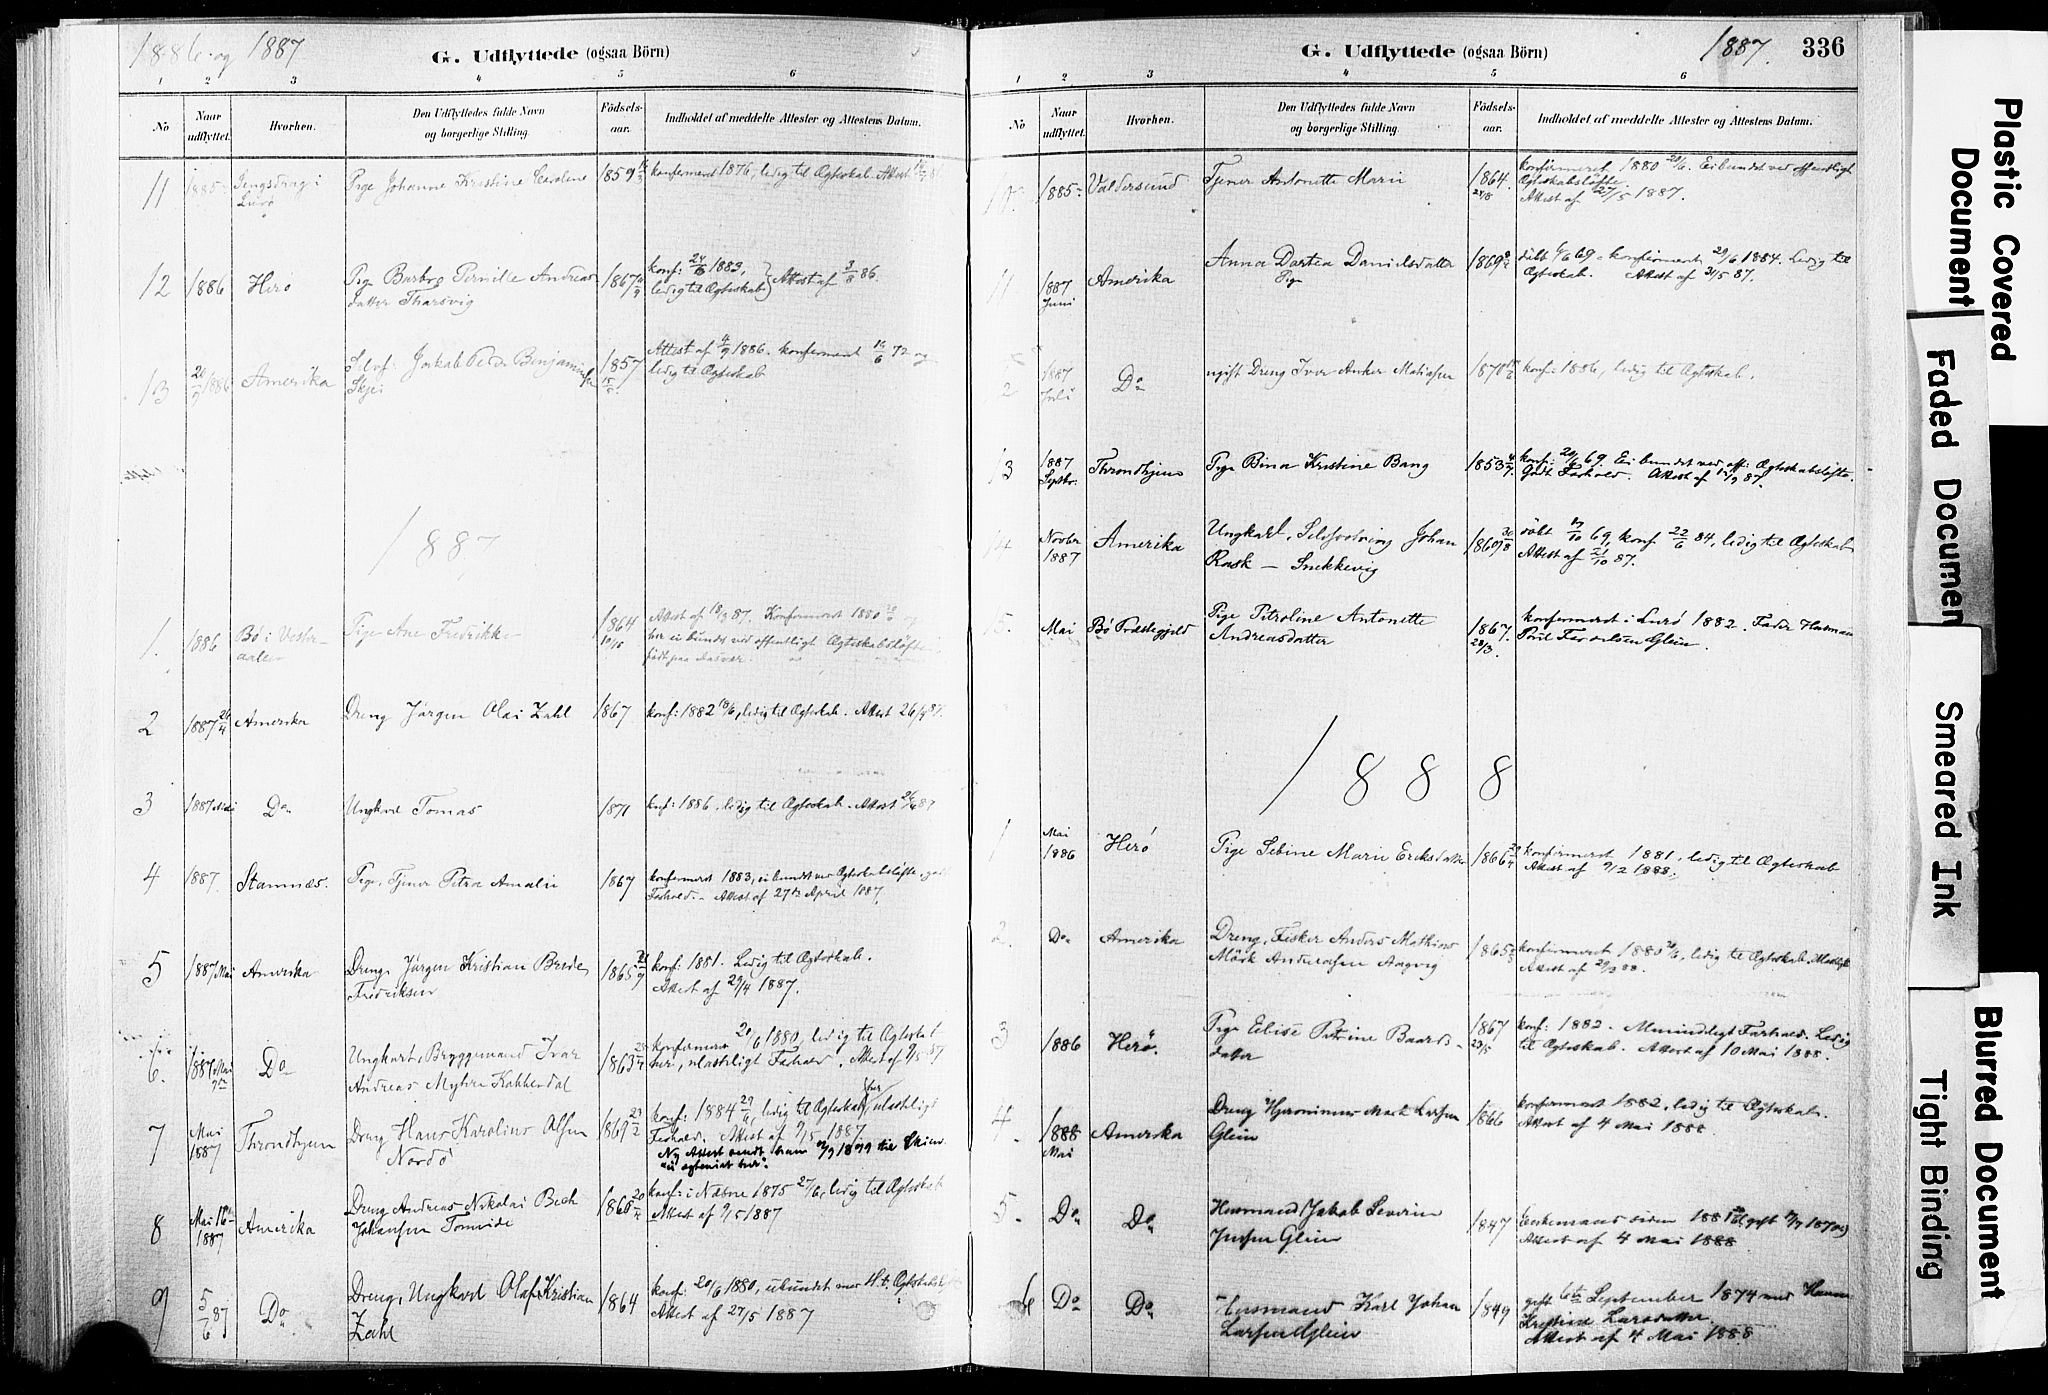 1886 og 1887
G. Udflyttede (ogsaa Börn)
1 2 3 4 5 6
No
Naar udflyttet.
Hvorhen.
Den Udflyttedes fulde Navn og borgerlige Stilling.
Födsels-aar.
Indholdet af meddelte Attester og Attestens Datum.
11 1885 i Lurø Pige Johanne Kristine Caroline 1859 konfirmeret 1876, ledig til Ægteskab. Attest
12 1886 Herø Pige Barbro Pernille Andreas- 1867 konf: 24/6 1883, Attest af 3/8 86.
datter Tharsvig ledig til Ægteskab
13 20/9 1886 Amerika Jakob Peder Benjaminsen 1857 Attest af 4/9 1886. konfirmeret 14/6 72 og
Skjei 15/5 ledig til Ægteskab
1887
1. 1886 Bø i Vester- Pige Ane Fredrikke 1864 Attest af 18/3 87. Konfirmeret 1880
aalen 10/15 her ei bundet ved offentligt Ægteskabsløfte.
født paa
2 1887 26/4 Amerika Dreng Jørgen Olai Zahl 1867 konf: 1882 18/6, ledig til Ægteskab. Attest 26/4 87.
3 1887 Do Ungkarl Tomas 1871 konf: 1886. ledig til Ægteskab. Attest 26/4 87
4 1887. Stamnæs. Pige, Tjener Petra Amalie 1867 konfirmeret 1883, ei bundet ved Ægteskabsløfte, godt
Forhold. Attest af 27de April 1887.
5 1887 Mai Amerika Dreng Jørgen Kristian Brede 1865 konf: 1881. Ledig til Ægteskab.
Fredriksen Attest af 29/4 1887.
6. 1887 Mai Do Ungkarl, Bryggemand Ivar 1863 konfirmeret 20/6 1880, ledig til Ægteskab
Andreas Myhre Kobberdal her, ulasteligt Forhold. Attest af 9/5 87
7 Mai 1887 Throndhjem Dreng Hans Karolius Olsen 1869 23/2 konf: 1884 29/6, ledig til Ægteskab her, ulasteligt
Nordø Forhold. Attest af 9/5 1887
Ny Attest sendt ham 1899 til Skien
"ei ægteviet her".
8 Mai 1887 Amerika Dreng Andreas Nikolai Bech 1860 20/4 konf: i Næsne 1875 27/6, ledig til Ægteskab
Johansen Tomvide Attest af 9/5 1887
9 5/6 87 Do Dreng, Ungkarl Olaf Kristian 1864 konf: 20/6 1880, ubundet med H.t. Ægteskabsløfte
Zahl Attest af 27/5 1887
G. Udflyttede (ogsaa Börn)
1887.
336
1 2 3 4 5 6
No
Naar udflyttet.
Hvorhen.
Den Udflyttedes fulde Navn og borgerlige Stilling.
Födsels-aar.
Indholdet af meddelte Attester og Attestens Datum.
10. 1885 Valdersund Tjener Antonette Marie 1864. 24/8 konfirmeret 1880 20/6. Ei bundet ved offentligt
Ægteskabsløfte
Attest af 27/5 1887.
11 1887 Juni Amerika Anna Dortea Danielsdatter 1869 døbt 69 - konfirmeret 29/6 1884. Ledig til
Pige Ægteskab. Attest af 31/5 87.
2 1887 Juli Do ugift Dreng Iver Anker Mathiasen 1870 konf: 1886, ledig til Ægteskab.
13 1887 Septbr. Throndhjem Pige Bina Kristine Bang 1853 konf: 20/6 69. Ei bundet ved off: Ægteskabsløfte.
Godt Forhold. Attest af 12/9 87.
14 Novbr 1887 Amerika Ungkarl, Johan 1869 30/8 døbt 17/10 69, konf 22/6 84, ledig til Ægteskab
Rask — Snekkevig Attest af 21/10 87.
15. Mai Bø Præstegjeld Pige Petroline Antonette 1867. 28/3. konfirmeret i Lurø 1882. Fader Husmand
Andreasdatter Glein.
1888
1 Mai 1886 Herø Pige Sebine Marie Eriksdatter 1866 konfirmeret 1881, ledig til Ægteskab
Attest af 9/2 1888.
2. Do Amerika Dreng, Fisker Anders Mathias 1865 konfirmeret 1880 20/6, ledig til Ægteskab.
Mörk Andreasen Aagvig Attest af 29/3 88.
3 1886 Herø. Pige Elise Petrine Baards- 1867 23/5 konf: 1882. Almindeligt Forhold. Ledig
datter til Ægteskab. Attest af 10 Mai 1888.
4. 1888 Mai Amerika Dreng Hjeronimus Mark Larsen 1866 konfirmeret 1882, ledig til Ægteskab.
Glein Attest af 4 Mai 1888
5. Do Do Husmand Jakob Severin 1847 Enkemand siden 1881
Jensen Glein Attest af 4 Mai 1888
6 Do Do Husmand Karl Johan 1849 gift 6te September 1874 med Hanna
Larsen Glein Kristine Larsdatter.
Attest af 4 Mai 1888
Plastic Covered Document
Faded Document
Smeared Ink
Blurred Document
Tight Binding